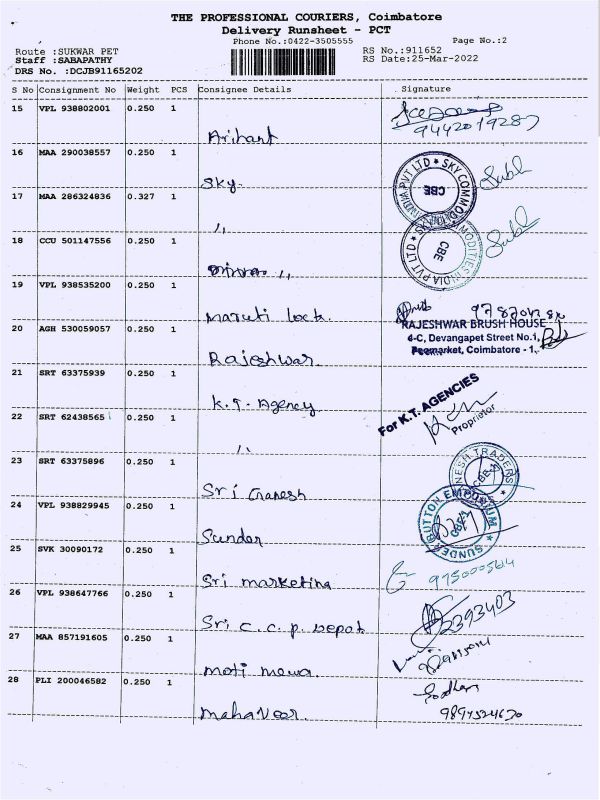 THE PROFESSIONAL COURIERS, Coimbatore
Delivery Runsheet - PCT
Phone No.:0422-3505555 Page No.:2
Route :SUKWAR PET RS No.:911652
Staff :SABAPATHY RS Date:25-Mar-2022
DRS No. :DCJB91165202
S No Consignment No Weight PCS Consignee Details Signature
15 VPL 938802001 0.250 1
Arihant
9442019287
16 MAA 290038557 0.250 1
Sky.
INDIA PVT LTD * SKY COMMODITIES
CBE
17 MAA 286324836 0.327 1
,,
SKY COMMODITIES INDIA PVT LTD *
CBE
18 CCU 501147556 0.250 1
,,
19 VPL 938535200 0.250 1
Maruti lock.
20 AGH 530059057 0.250 1
RAJESHWAR BRUSH HOUSE
6-C, Devangapet Street No.1,
Poomarket, Coimbatore - 1.
Rajeshwar.
21 SRT 63375939 0.250 1
K.T. Agency
For K.T. AGENCIES
Proprietor
22 SRT 62438565 0.250 1
,,
23 SRT 63375896 0.250 1
Sri Ganesh
GANESH TRADERS
CBE-1
24 VPL 938829945 0.250 1
Sunder
SUNDER BUTTON EMPORIUM
CBE-1
25 SVK 30090172 0.250 1
Sri marketing
26 VPL 938647766 0.250 1
Sri C.C.P. Depot
27 MAA 857191605 0.250 1
Moti mewa.
28 PLI 200046582 0.250 1
Mahaveer.
9894524670